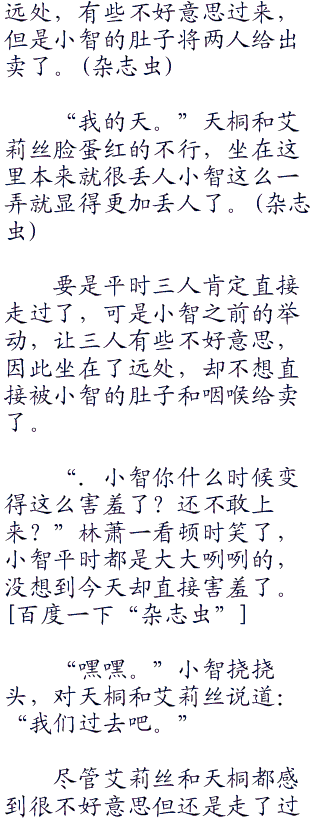 远处，有些不好意思过来，
但是小智的肚子将两人给出
卖了。(杂志虫)
“我的天。”天桐和艾
莉丝脸蛋红的不行，坐在这
里本来就很丢人小智这么一
弄就显得更加丢人了。(杂志
虫)
要是平时三人肯定直接
走过了，可是小智之前的举
动，让三人有些不好意思，
因此坐在了远处，却不想直
接被小智的肚子和咽喉给卖
了。
“．小智你什么时候变
得这么害羞了？还不敢上
来？”林萧一看顿时笑了，
小智平时都是大大咧咧的，
没想到今天却直接害羞了。
[百度一下“杂志虫”]
“嘿嘿。”小智挠挠
头，对天桐和艾莉丝说道：
“我们过去吧。”
尽管艾莉丝和天桐都感
到很不好意思但还是走了过